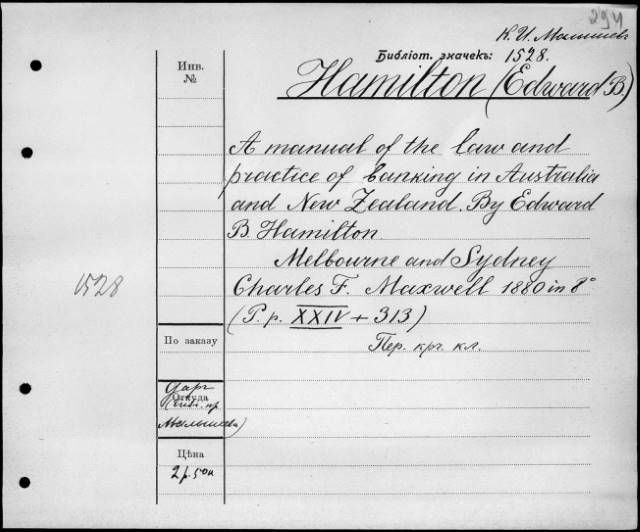 294
К. И. Малышевъ
Библіот. значекъ: 1528.
Инв.
№
Hamilton (Edward B.)
A manual of the law and
practice of banking in Australia
and New Zealand. By Edward
B. Hamilton.
Melbourne and Sydney
1528
Charles F. Maxwell 1880 in 8°
(P.p. XXIV + 313)
По заказу
Пер. крг. кл.
Даръ
Откуда
Малышева)
Цѣна
2 р. 50 к